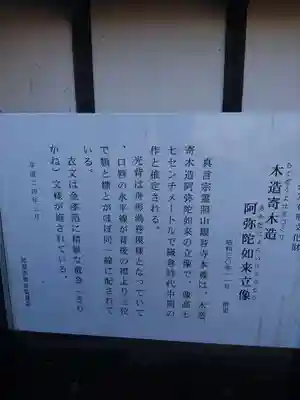 文化財
もくぞうよせぎづくり
木造寄木造
あみだにょらいりゅうぞう
阿弥陀如来立像
昭和三〇年一一月 指定
真言宗霊照山蓮華寺本尊は、木造
寄木造阿弥陀如来の立像で、像高七
七センチメートルで鎌倉時代中期の
作と推定される。
光背は舟形渦巻模様となっていて
、口唇の水平線が背後の襟より上位
で顎と襟とがほぼ同一線に配されて
いる。
衣文は金漆箔に精緻な截金(きり
かね)文様が施されている。
平成二四年二月
教育委員会